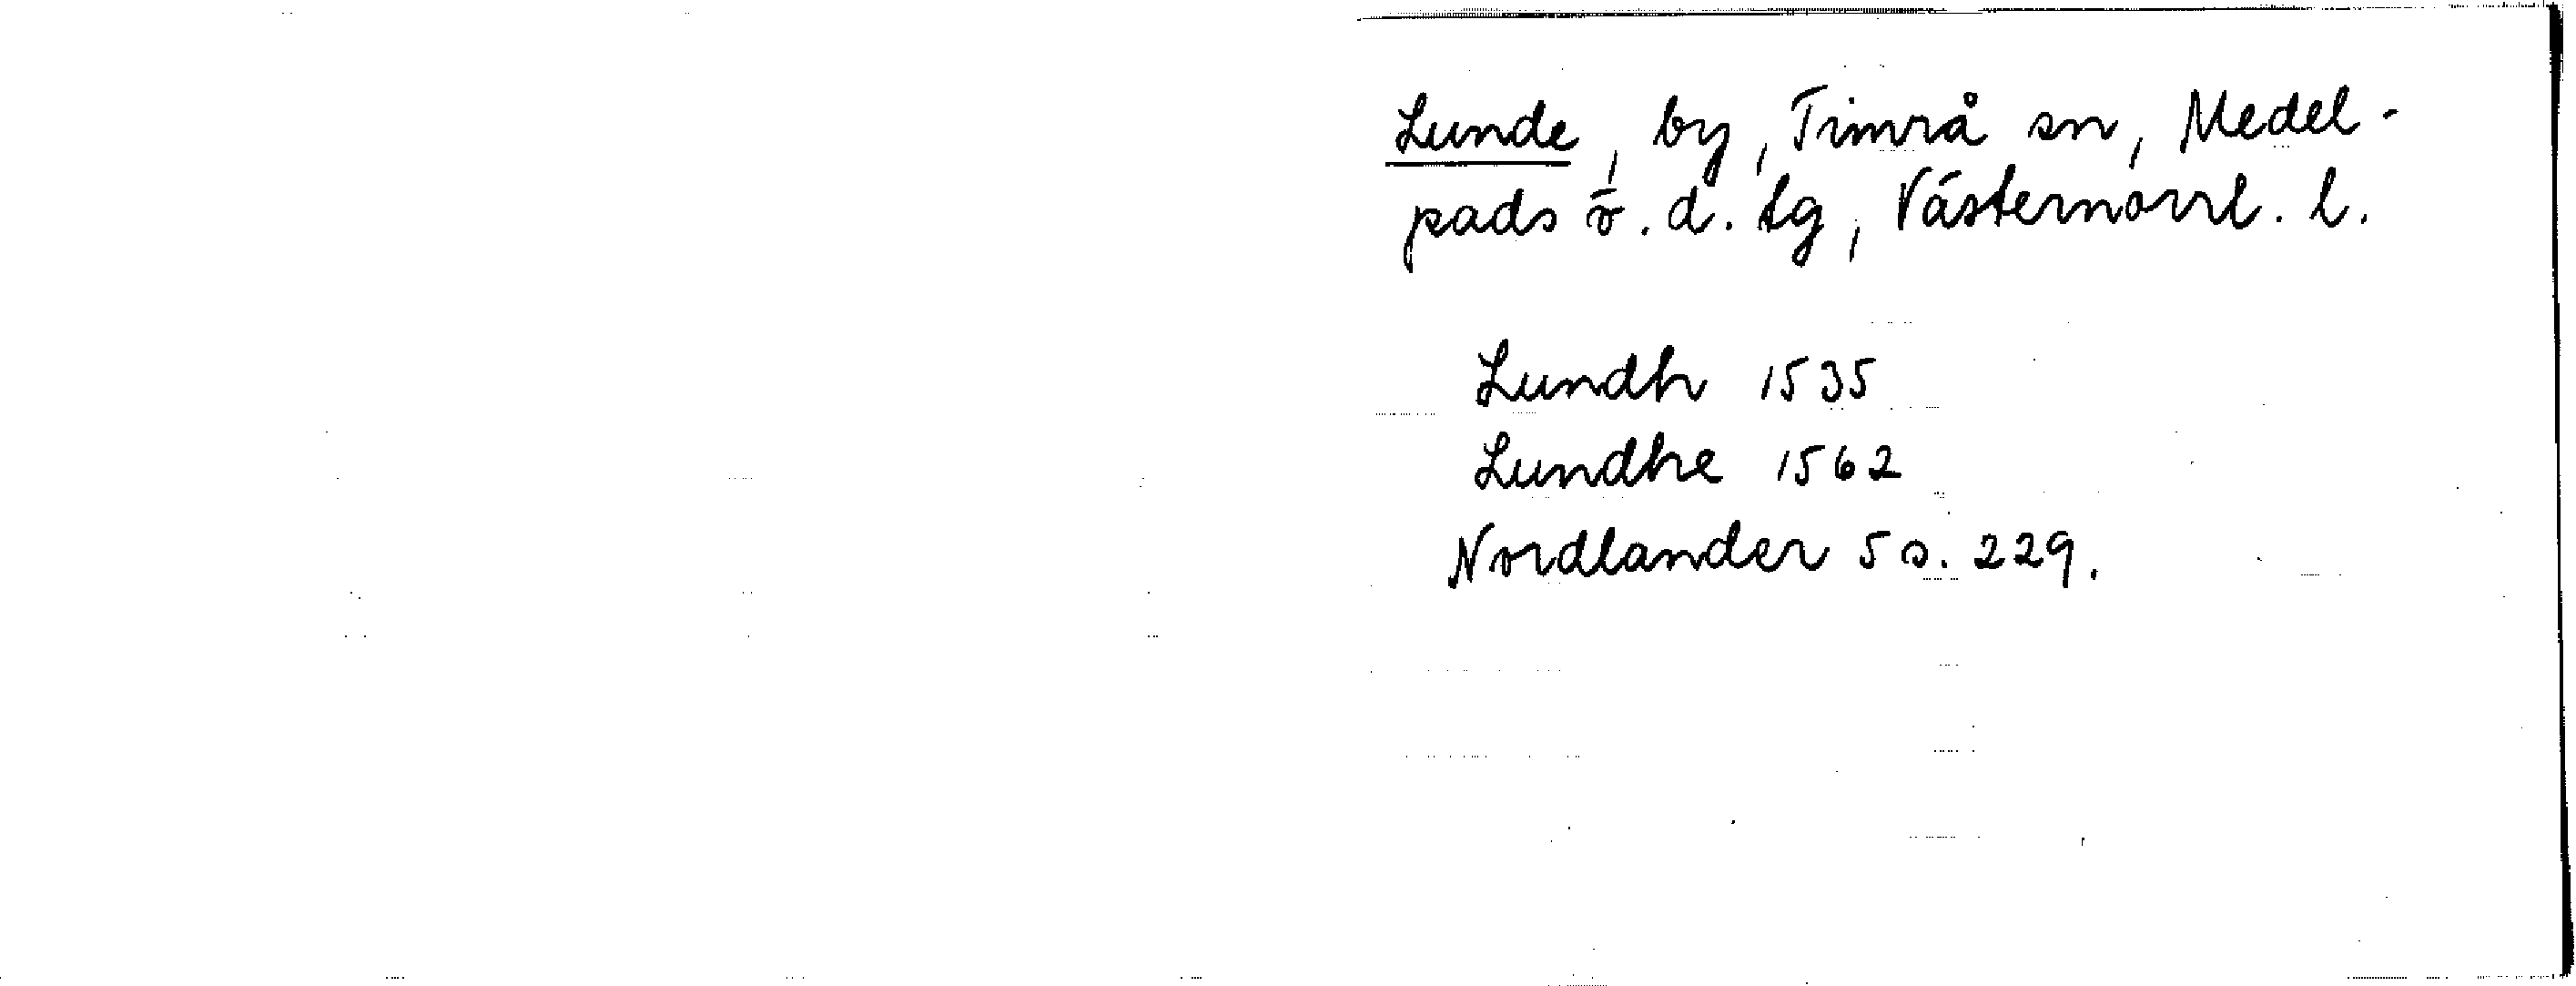 Lunde, by, Timrå sn, Medel-
pads ö. d. tg, Västernorrl. l.
Lundh 1535
Lundhe 1562
Nordlander 5 s. 229.